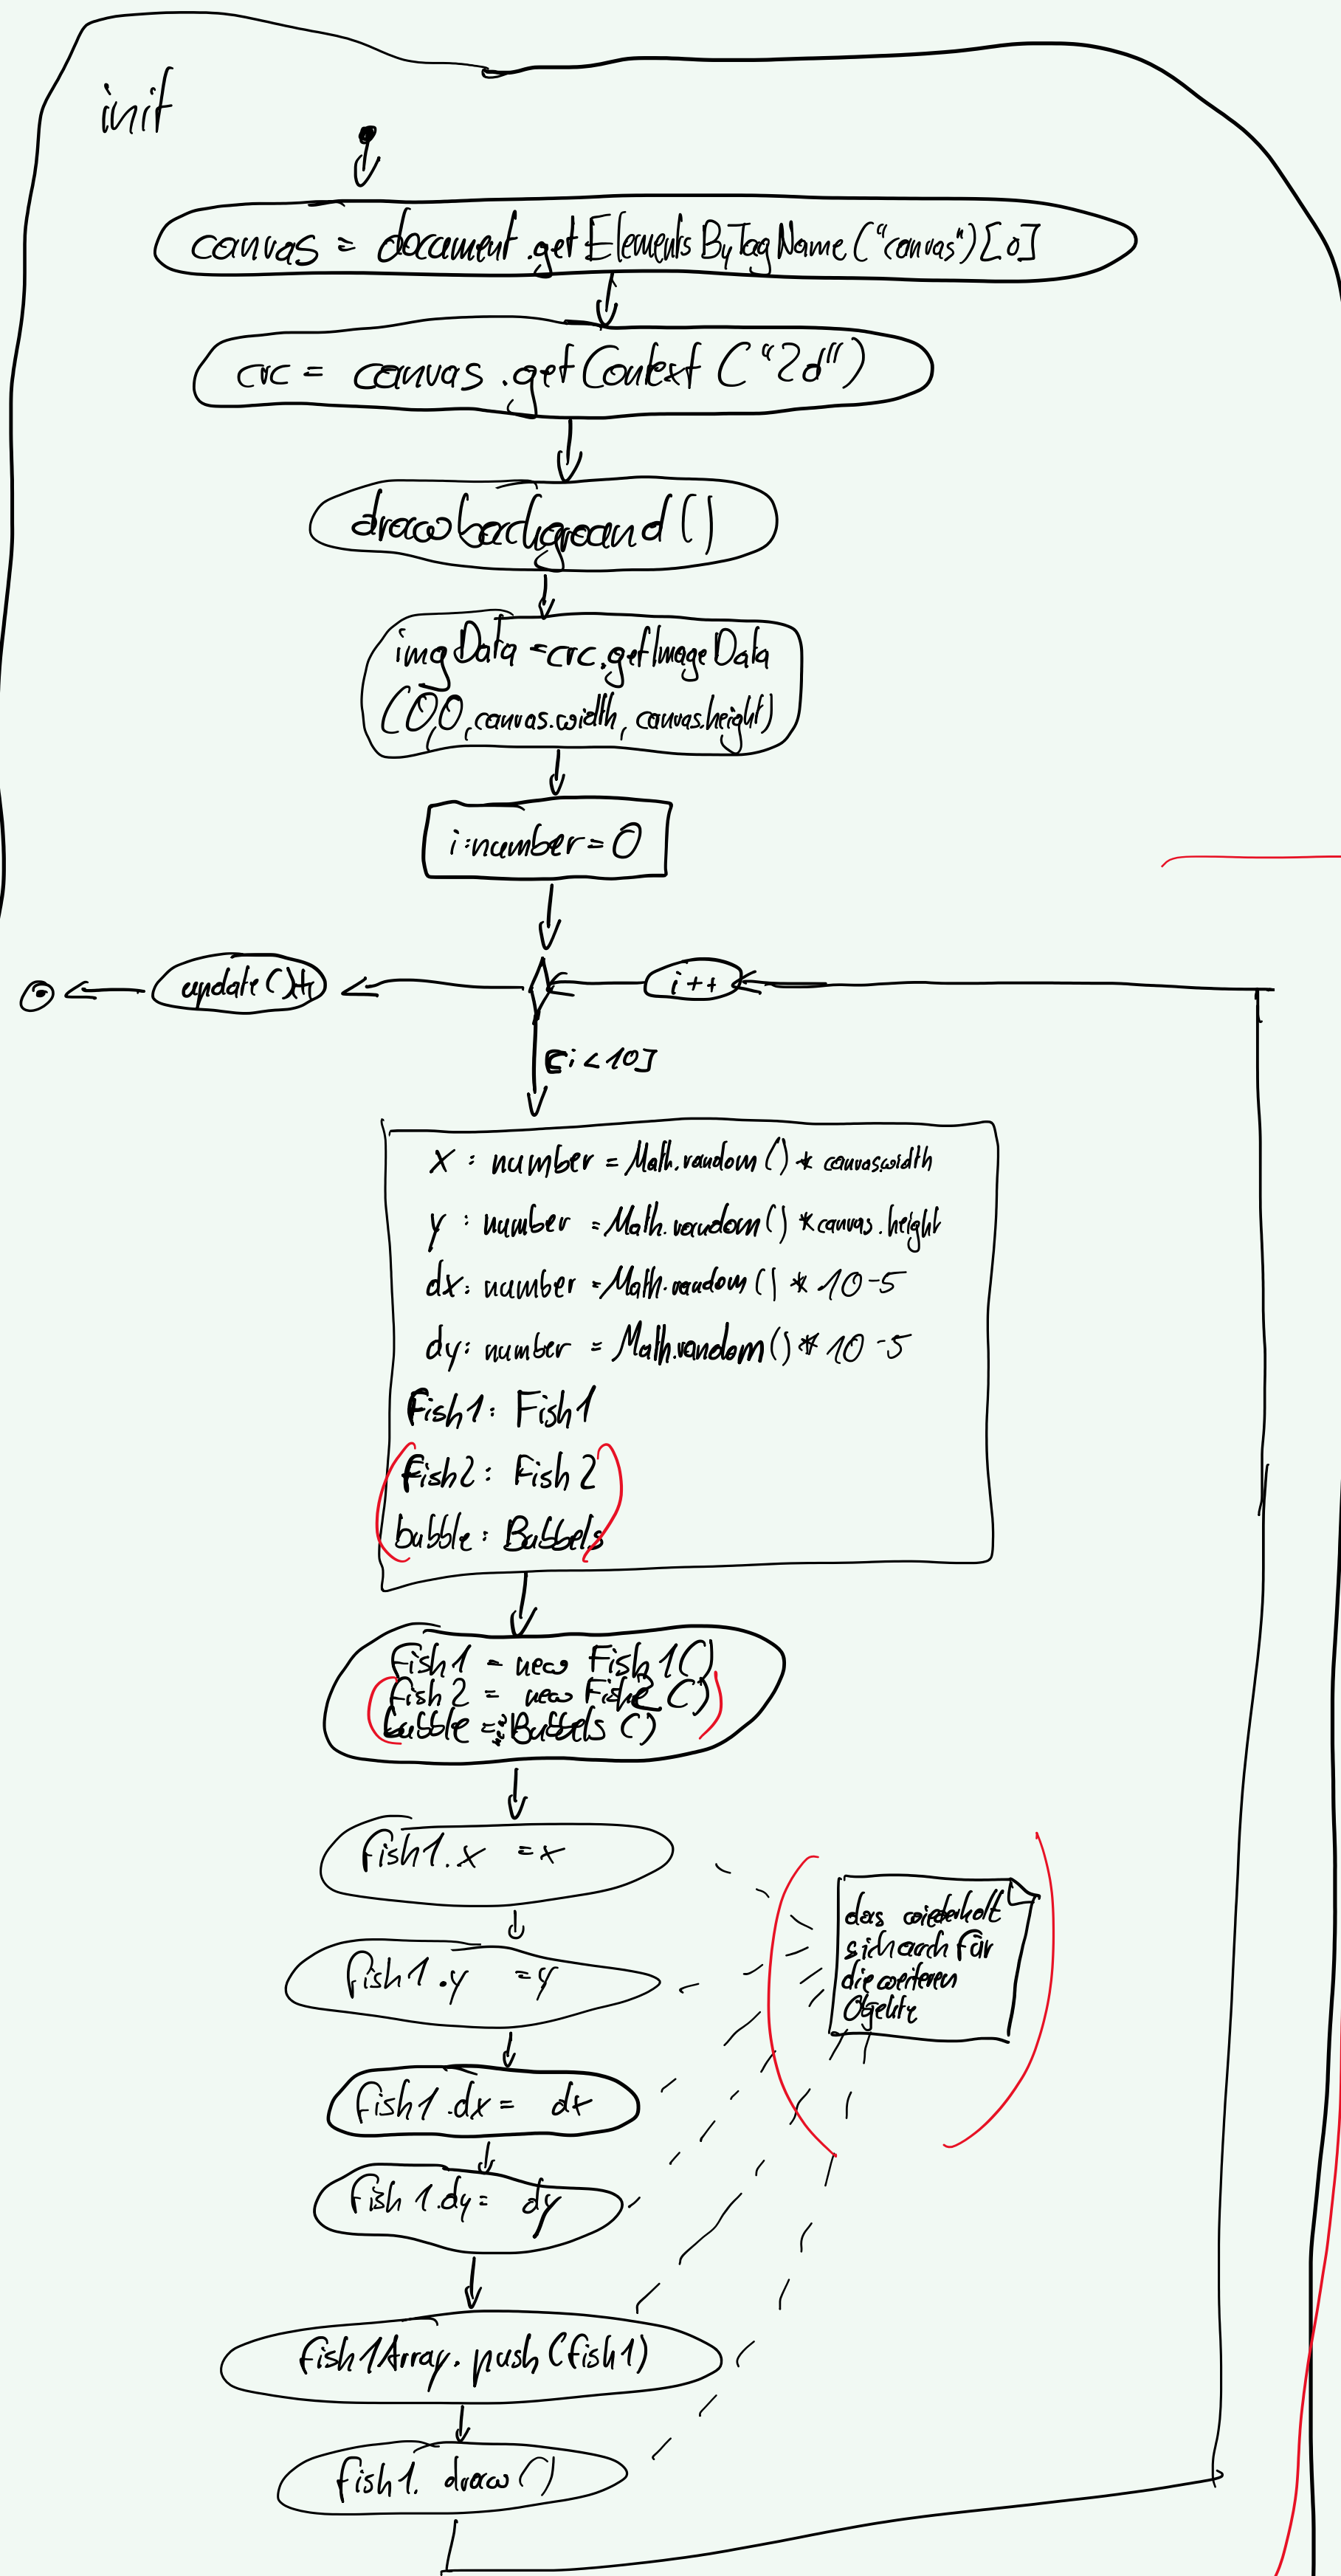 init
canvas = document.getElementsByTagName("canvas")[0]
crc = canvas.getContext("2d")
drawbackground()
imgData = crc.getImageData
(0,0, canvas.width, canvas.height)
i:number = 0
update()
i++
[i < 10]
x : number = Math.random() * canvas.width
y : number = Math.random() * canvas.height
dx: number = Math.random() * 10 - 5
dy: number = Math.random() * 10 - 5
fish1: Fish1
fish2: Fish2
bubble: Bubbels
fish1 = new Fish1()
fish2 = new Fish2()
bubble = Bubbels()
fish1.x = x
fish1.y = y
das wiederholt
sich auch für
die weiteren
Objekte
fish1.dx = dx
fish1.dy = dy
fish1Array.push(fish1)
fish1.draw()